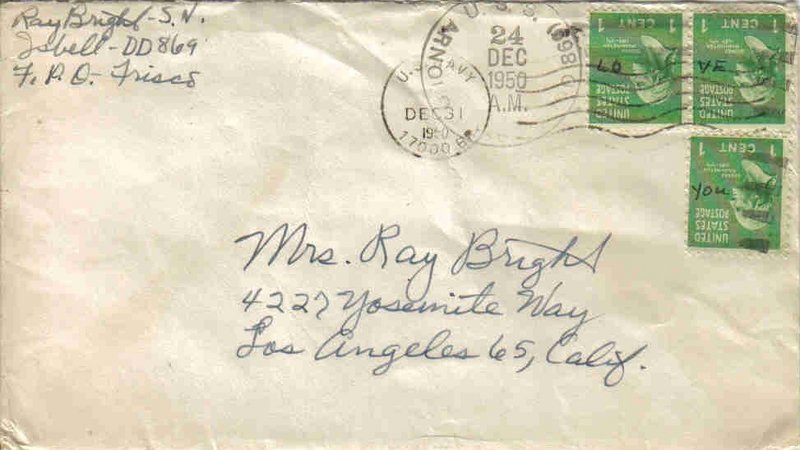 Ray Bright - S. N.
Isbell - DD 869
F. P. O. Frisco
U. S. S.
ARNOLD
24
DEC
1950
A.M.
U. S. NAVY
DEC 31
17000 BR.
1 CENT 1
UNITED
STATES
POSTAGE
LO
1 CENT 1
UNITED
STATES
POSTAGE
VE
1 CENT 1
UNITED
STATES
POSTAGE
you
Mrs. Ray Bright
4227 Yosemite Way
Los Angeles 65, Calif.